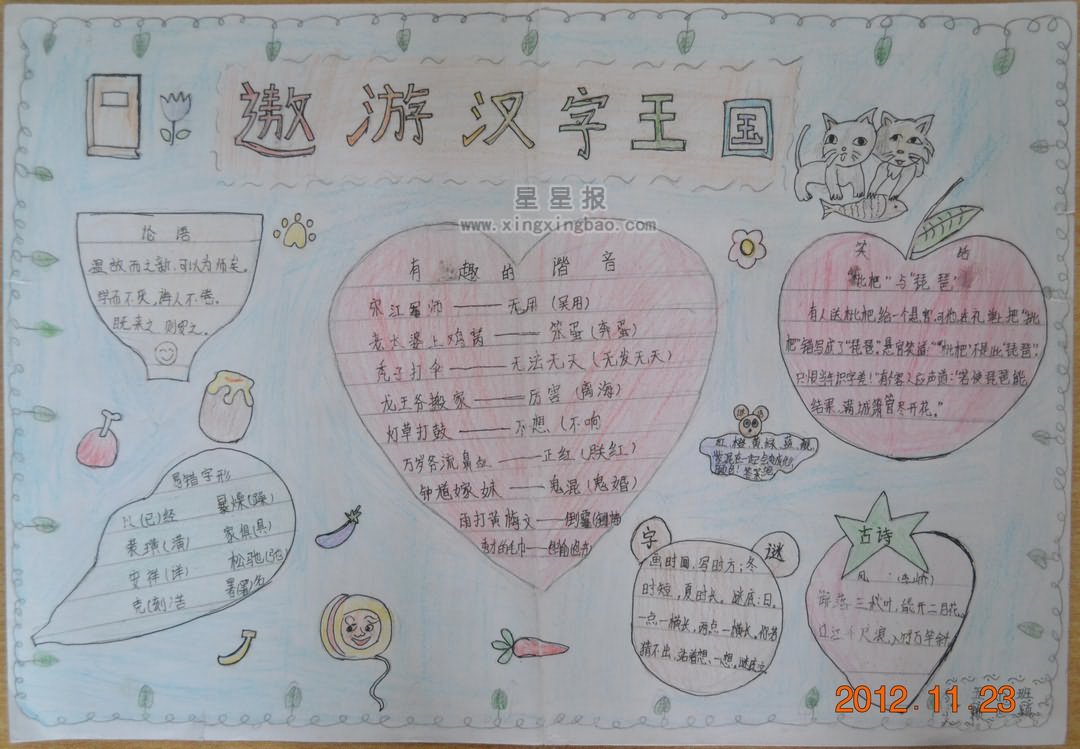 遨游汉字王国
星星报
www.xingxingbao.com
论语
温故而知新,可以为师矣。
学而不厌,诲人不倦。
既来之 则安之。
有趣的谐音
宋江军师——无用(吴用)
老太婆上鸡窝——笨蛋(奔蛋)
秃子打伞——无法无天(无发无天)
龙王爷搬家——厉害(离海)
灯草打鼓——不想(不响
万岁爷流鼻血——正红(朕红)
钟馗嫁妹——鬼混(鬼婚)
雨打黄梅
笑话
"枇杷"与"琵琶"
有人送枇杷给一个县官,可他在礼
把"枇
杷"错写成了"琵琶"。县官笑道:"'枇杷'不是此'琵琶',
只恨当年识字差!"有个客人应声道:"若使琵琶能
结果,满城箫管尽开花。"
红 橙 黄 绿
写错字形
以(已)经
暴燥(躁)
装璜(潢)
家俱(具)
安祥(详)
松驰(弛)
克(刻)
字谜
画时圆,写时方;冬
时短,夏时长。谜底:日。
一点一横长,两点一横长,你若
猜不出,站着想一想。谜底:立
古诗
风 (李峤)
解落三秋叶,能开二月花。
过江千尺浪,入竹万竿斜
班
2012.11.23